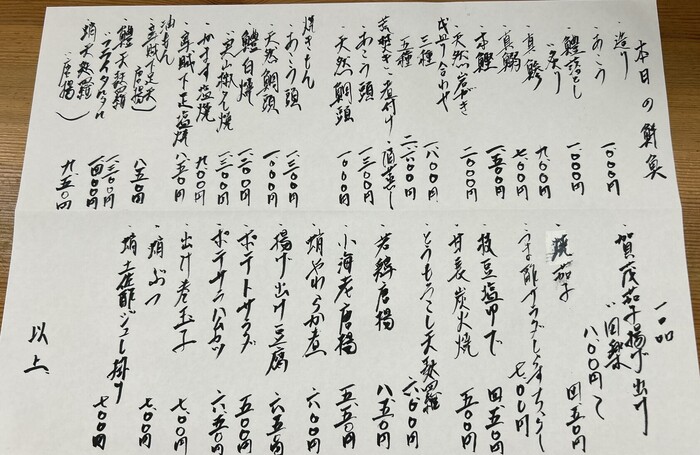 本日の鮮魚
・造り
・あこう 一、〇〇〇円
・鱧落とし 一、〇〇〇円
・〃炙り
・真鯵 九〇〇円
・真鰯 七〇〇円
・本鰹 一、五〇〇円
・天然つばす 二、〇〇〇円
盛り合わせ
三種 一、八〇〇円
五種 二、六〇〇円
・荒焚き・煮付け・酒蒸し
・あこう頭 一、三〇〇円
・天然鯛頭 一、〇〇〇円
焼きもん
・あこう頭 一、三〇〇円
・天然鯛頭 一、〇〇〇円
・鱧白焼 一、二〇〇円
・〃山椒焼 一、三〇〇円
・かます塩焼 九〇〇円
・真鯵下足塩焼 八五〇円
油もん
(唐揚) 八五〇円
・鱧天麩羅 一、三〇〇円
・〃フライタルタル 一、四〇〇円
・蛸天麩羅(唐揚) 九五〇円
一品
賀茂茄子揚げ出し
〃田楽
八〇〇円
・焼茄子 四五〇円
・うま酢サラダしらすちらし 七〇〇円
・枝豆塩ゆで 四五〇円
・甘長炭火焼 五〇〇円
・とうもろこし天麩羅 六〇〇円
・若鶏唐揚 八五〇円
・小海老唐揚 五五〇円
・蛸やわらか煮 六〇〇円
・揚げ出し豆腐 六五〇円
・ポテトサラダ 五〇〇円
・ポテサラハムカツ 六五〇円
・出汁巻玉子 七〇〇円
・蛸ぶつ 七〇〇円
・蛸土佐酢ジュレ掛け 七〇〇円
以上